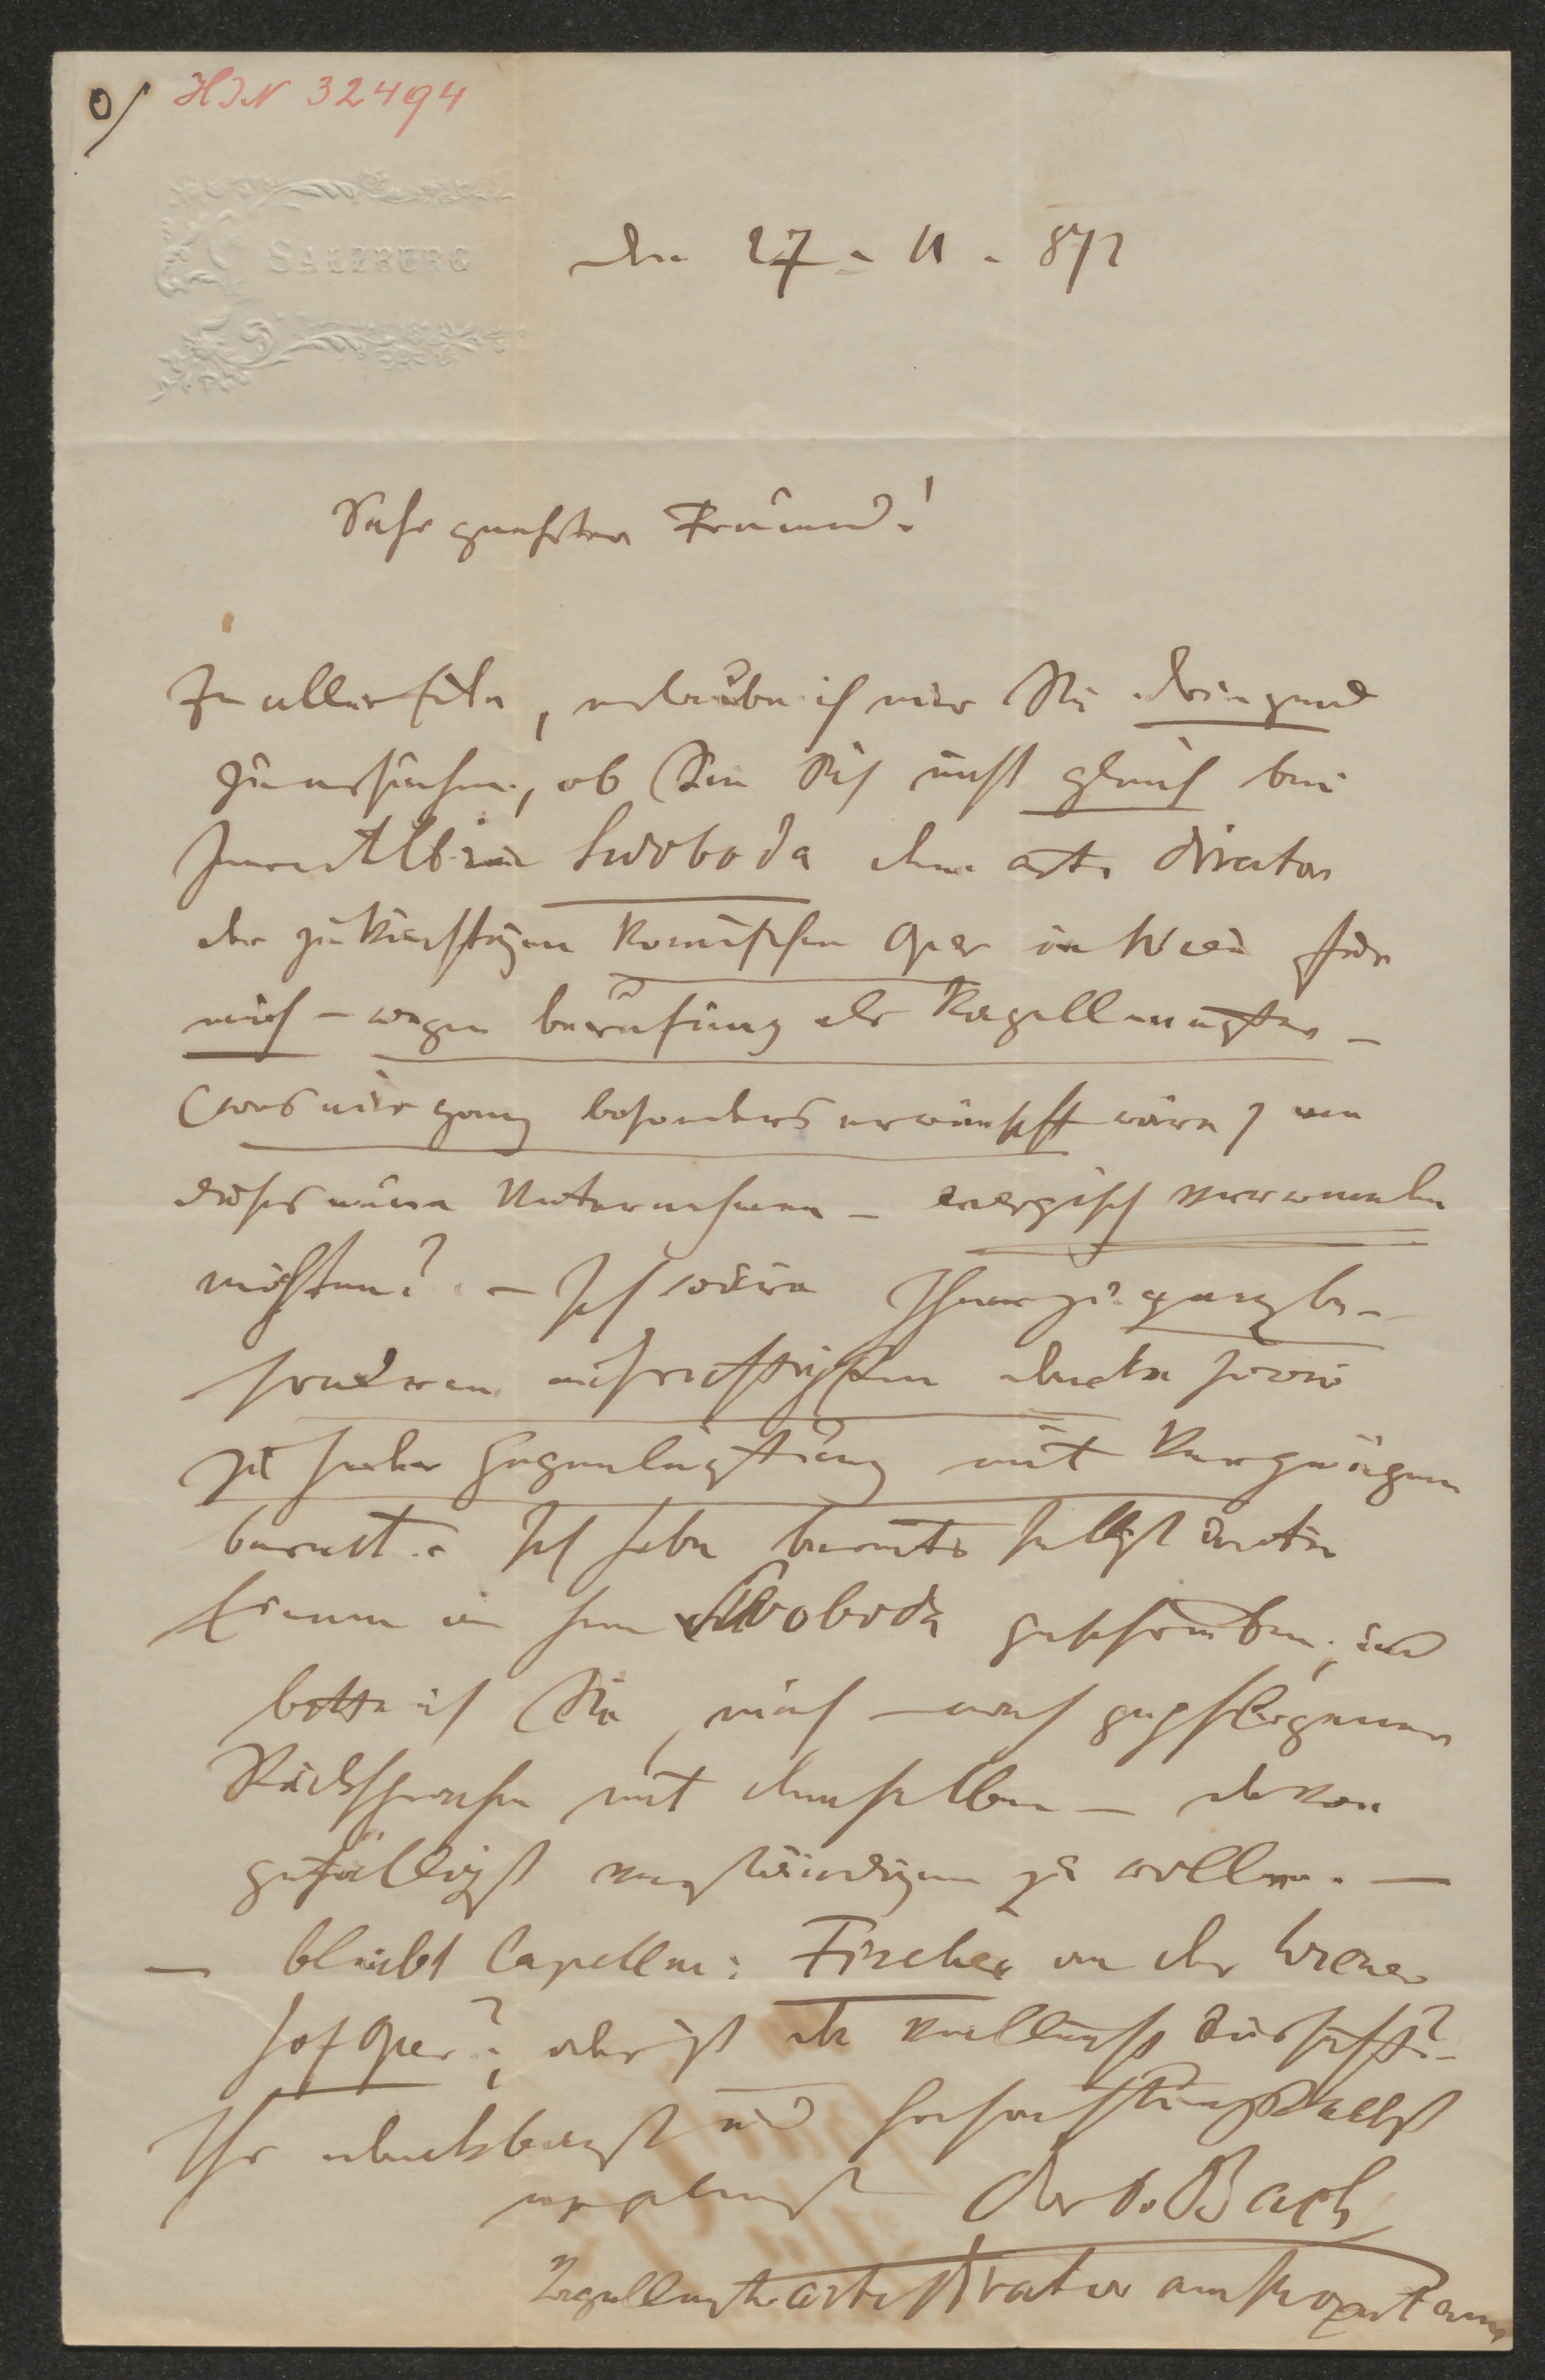 O/ HIN 32494
SALZBURG
den 27 - 11 - 872
Sehr geehrter Freund!
In aller Eile, erlaube ich mir Sie dringend
zu ersuchen, ob Sie Sich nicht gleich bei
Herrn Albin Swoboda dem art. Director
der zukünftigen Komischen Oper in Wien für
mich – wegen berufung als Kapellmeister –
(was mir ganz besonders erwünscht wäre) an
dieses neue Unternehmen – energisch verwenden
möchten? – Ich wäre Ihnen zu ganz be-
sonderen aufrichtigsten danke sowie
zu jeder Gegenleistung mit Vergnügen
bereit. Ich habe bereits selbst unter
Einem an Herrn Swoboda geschrieben; und
bitte ich Sie, mich – nach gepflogener
Rücksprache mit demselben – davon
gefälligst verständigen zu wollen. –
– bleibt Capellm: Fischer an der Wiener
Hof Oper?, oder ist die Stelle
Ihr dankbarst und hochachtungsvollst
ergebenst Otto v. Bach
Kapellmeister artist Director am Mozarteum